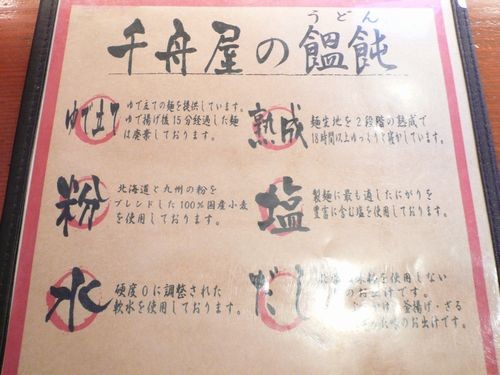 うどん
千舟屋の饂飩
ゆで立て
ゆで立ての麺を提供しています。
ゆで揚げ後15分経過した麺
は廃棄しております。
熟成
麺生地を2段階の熟成で
18時間以上ゆっくりと寝かしています。
粉
北海道と九州の粉を
ブレンドした100%国産小麦
を使用しております。
塩
製麺に最も適したにがりを
豊富に含む塩を使用しております。
水
硬度0に調整された
軟水を使用しております。
だし
を使用しない
のお出汁です。
釜揚げ・ざる
味のお出汁です。